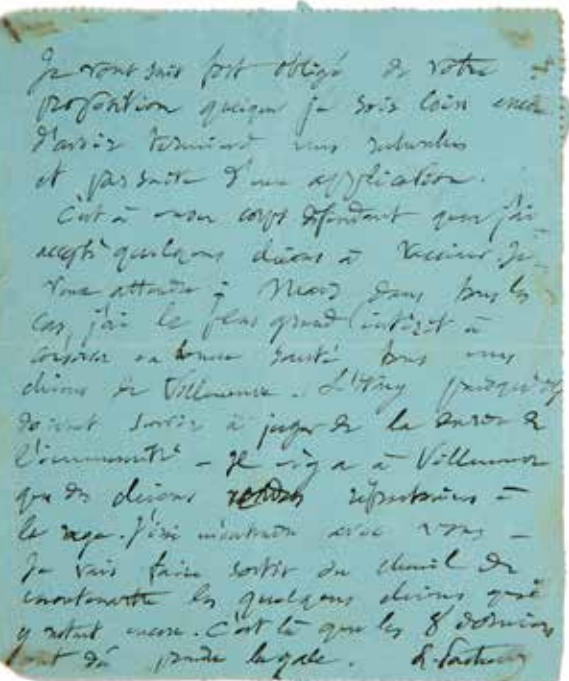 Je vous suis fort obligé de votre
proposition quoique je sois loin encore
d'avoir terminé mes recherches
et par suite d'une application.
C'est à mon corps défendant que j'ai
accepté quelques chiens à vacciner. Je
vous attendrai Mardi dans tous les
cas, j'ai le plus grand intérêt à
conserver en bonne santé tous mes
chiens de Villeneuve. L'Etang puisqu'ils
doivent servir à juger de la durée de
l'immunité – Il n'y a à Villeneuve
que des chiens réfractaires à
la rage. J'irai avec vous –
Je vais faire sortir du chenil de
les quelques chiens qui
y sont encore. C'est là que les 8 derniers
ont dû prendre la gale. L. Pasteur